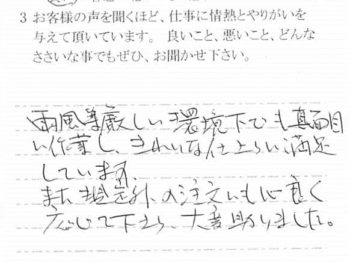 3 お客様の声を聞くほど、仕事に情熱とやりがいを
与えて頂いています。 良いこと、悪いこと、どんな
ささいな事でもぜひ、お聞かせ下さい。
雨風等厳しい環境下でも真面目
い作業し、きれいな仕上らい満足
しています。
また想定外の注文いも心良く
応じて下さり、大変助かりました。